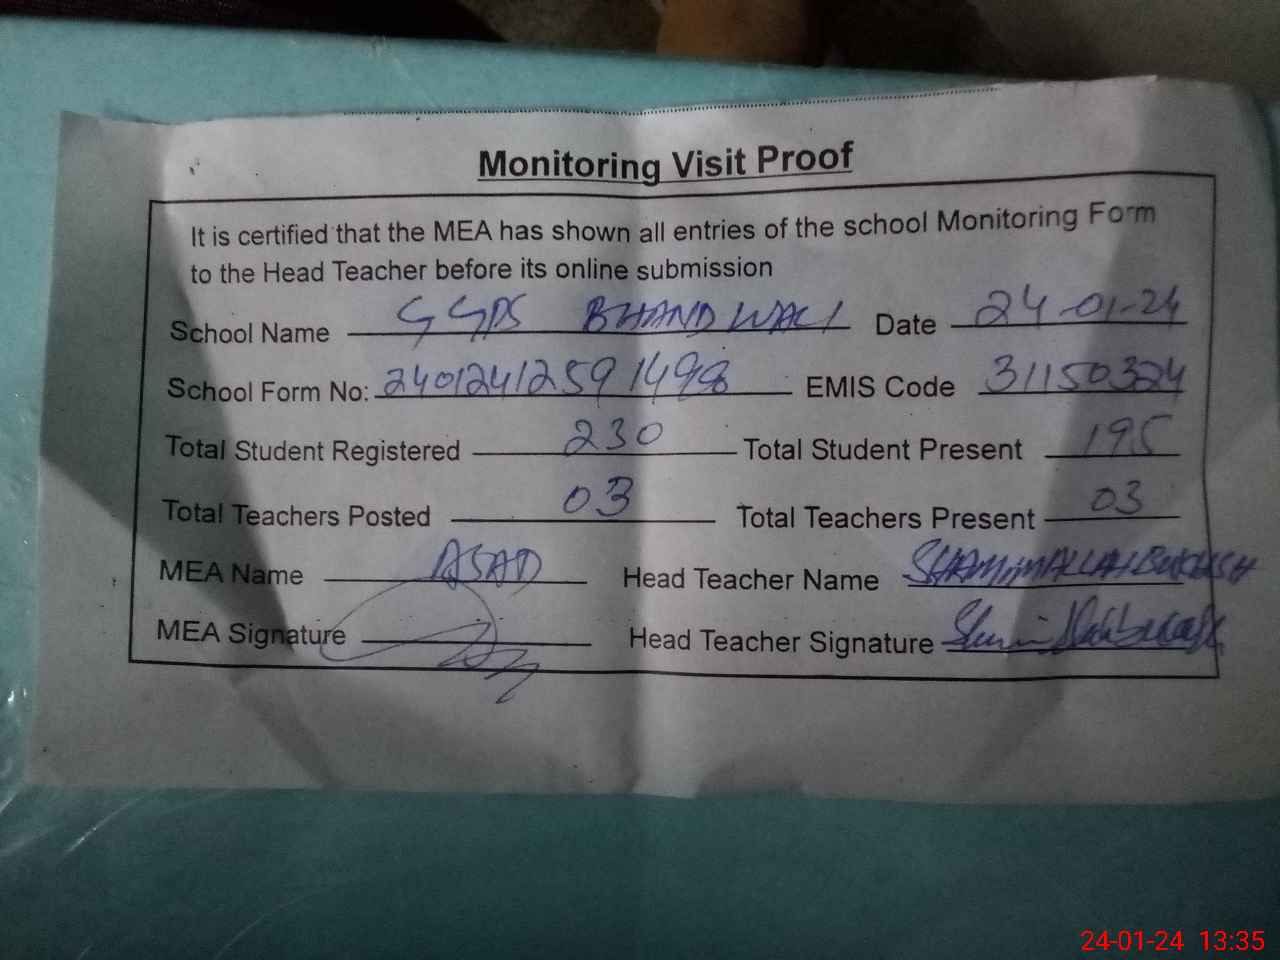 Monitoring Visit Proof
It is certified that the MEA has shown all entries of the school Monitoring Form
to the Head Teacher before its online submission
School Name GGPS BHAND WALI Date 24-01-24
School Form No: 24012412591498 EMIS Code 31150324
Total Student Registered 230 Total Student Present 195
Total Teachers Posted 03 Total Teachers Present 03
MEA Name ASAD Head Teacher Name SHAMIM ALLAH BUKHSH
MEA Signature Head Teacher Signature
24-01-24 13:35